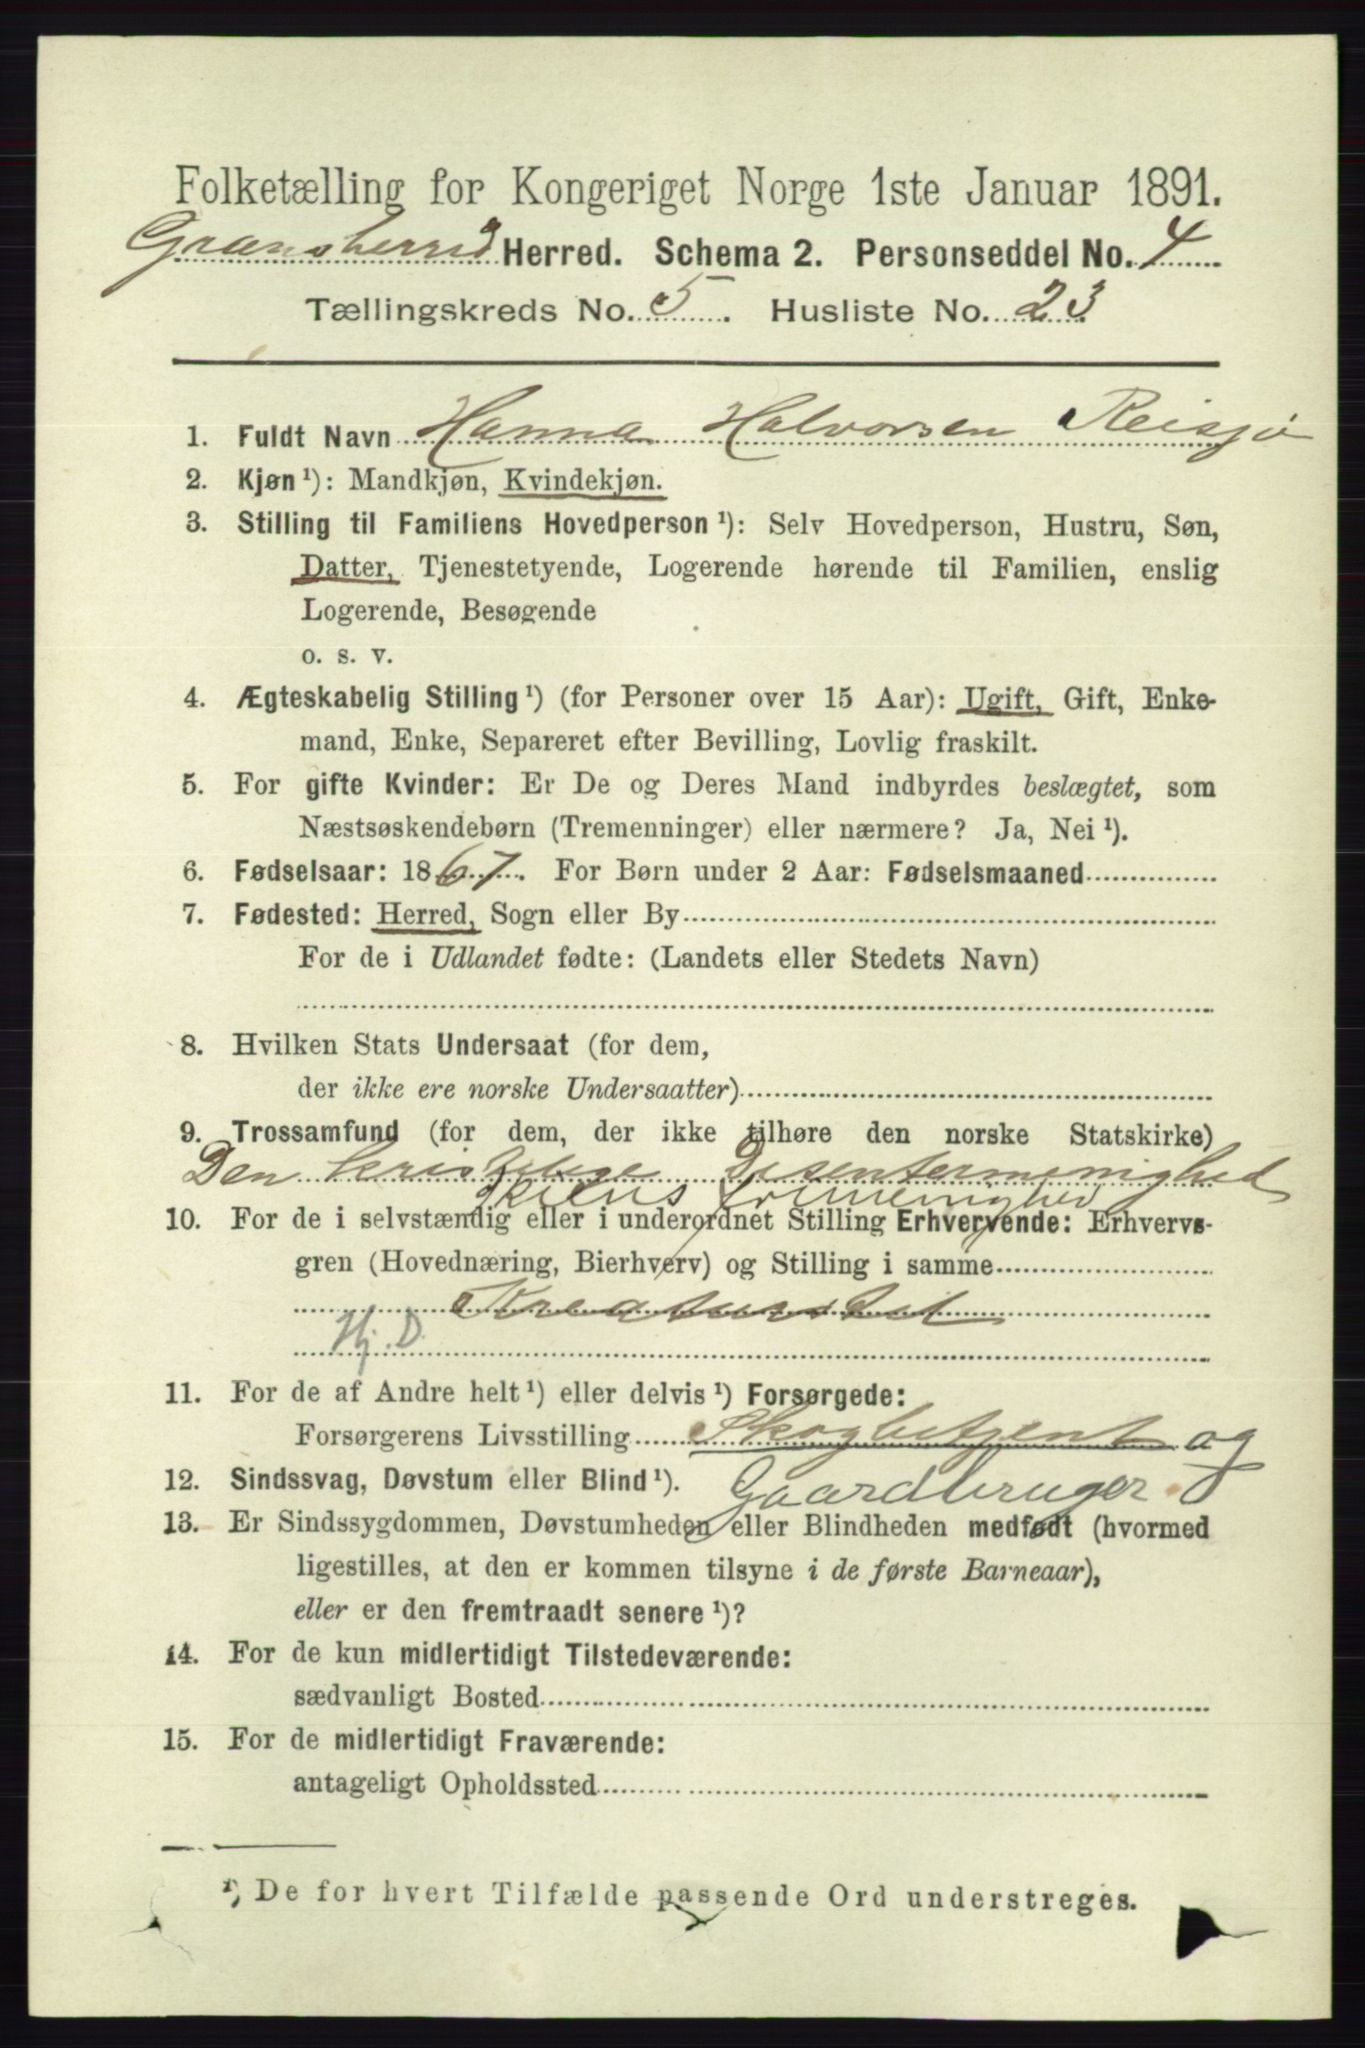 Folketælling for Kongeriget Norge 1ste Januar 1891.
Gransherred Herred. Schema 2. Personseddel No. 4
Tællingskreds No. 5. Husliste No. 23
1. Fuldt Navn Hanna Halvorsen Reisjø
2. Kjøn ¹): Mandkjøn, Kvindekjøn.
3. Stilling til Familiens Hovedperson ¹): Selv Hovedperson, Hustru, Søn,
Datter, Tjenestetyende, Logerende hørende til Familien, enslig
Logerende, Besøgende
o. s. v.
4. Ægteskabelig Stilling ¹) (for Personer over 15 Aar): Ugift, Gift, Enke-
mand, Enke, Separeret efter Bevilling, Lovlig fraskilt.
5. For gifte Kvinder: Er De og Deres Mand indbyrdes beslægtet, som
Næstsøskendebørn (Tremenninger) eller nærmere? Ja, Nei ¹).
6. Fødselsaar: 1867. For Børn under 2 Aar: Fødselsmaaned
7. Fødested: Herred, Sogn eller By
For de i Udlandet fødte: (Landets eller Stedets Navn)
8. Hvilken Stats Undersaat (for dem,
der ikke ere norske Undersaatter)
9. Trossamfund (for dem, der ikke tilhøre den norske Statskirke)
Den kristelige Disentermenighed
Skiens frimenighed
10. For de i selvstændig eller i underordnet Stilling Erhvervende: Erhvervs-
gren (Hovednæring, Bierhverv) og Stilling i samme
Kreaturstel
Hj. D.
11. For de af Andre helt ¹) eller delvis ¹) Forsørgede:
Forsørgerens Livsstilling Skogbetjent og
12. Sindssvag, Døvstum eller Blind ¹). Gaardbruger
13. Er Sindssygdommen, Døvstumheden eller Blindheden medfødt (hvormed
ligestilles, at den er kommen tilsyne i de første Barneaar),
eller er den fremtraadt senere ¹)?
14. For de kun midlertidigt Tilstedeværende:
sædvanligt Bosted
15. For de midlertidigt Fraværende:
antageligt Opholdssted
¹) De for hvert Tilfælde passende Ord understreges.